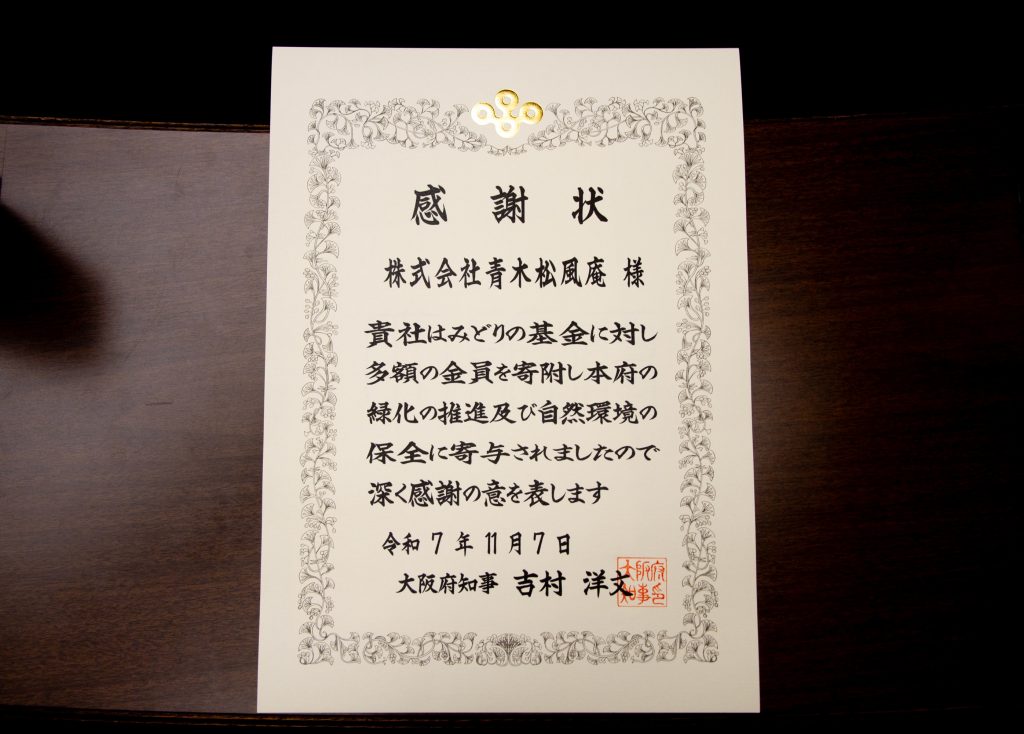 感謝状
株式会社青木松風庵 様
貴社はみどりの基金に対し
多額の金員を寄附し本府の
緑化の推進及び自然環境の
保全に寄与されましたので
深く感謝の意を表します
令和7年11月7日
大阪府知事 吉村 洋文
大阪府知事印